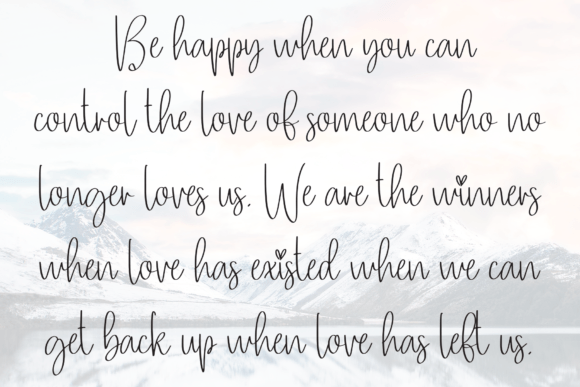 Be happy when you can
control the love of someone who no
longer loves us. We are the winners
when love has existed when we can
get back up when love has left us.